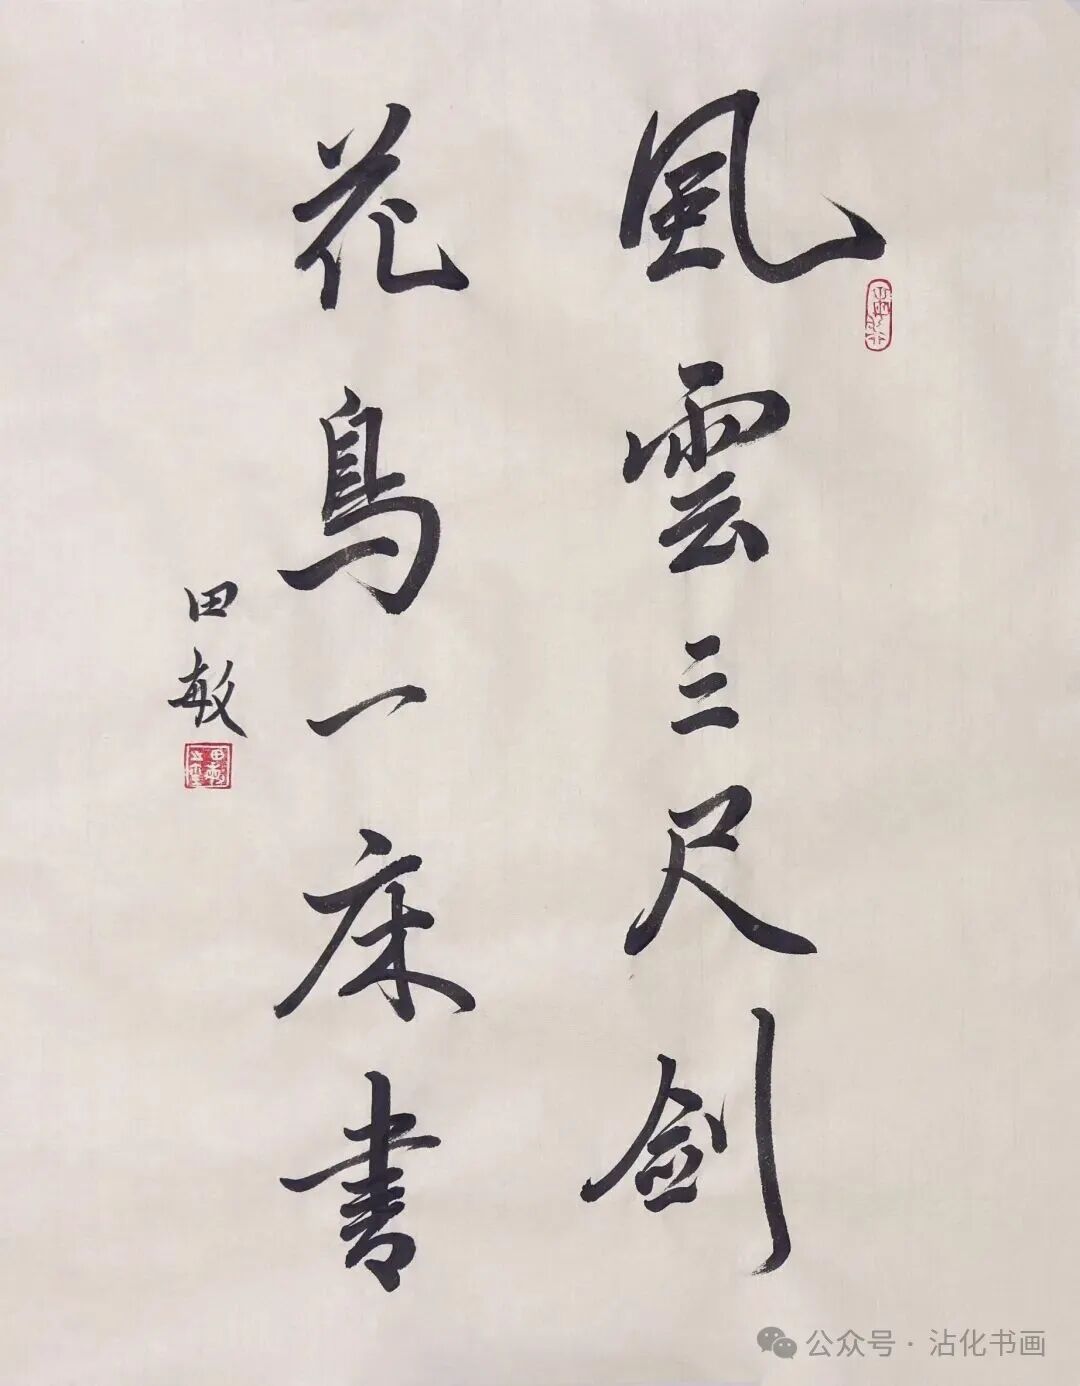 風雲三尺剑
花鳥一床書
田敏
公众号·沾化书画